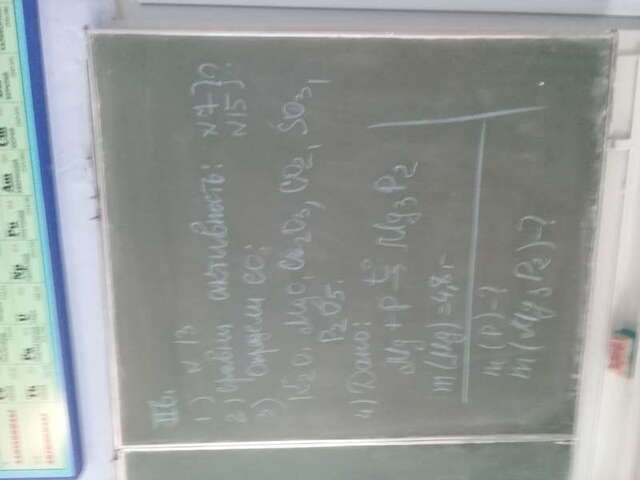 Th Pa U Np Pu Am Cm
IIв.
1) N 13
2) Сравни активность: N7 } ?
N15
3) Определи СО:
K₂O, MgO, Cr₂O₃, CO₂, SO₃,
P₂O₅.
4) Дано:
Mg + P t°→ Mg₃P₂
m (Mg) = 4,8 г
m (P) - ?
m (Mg₃P₂) - ?